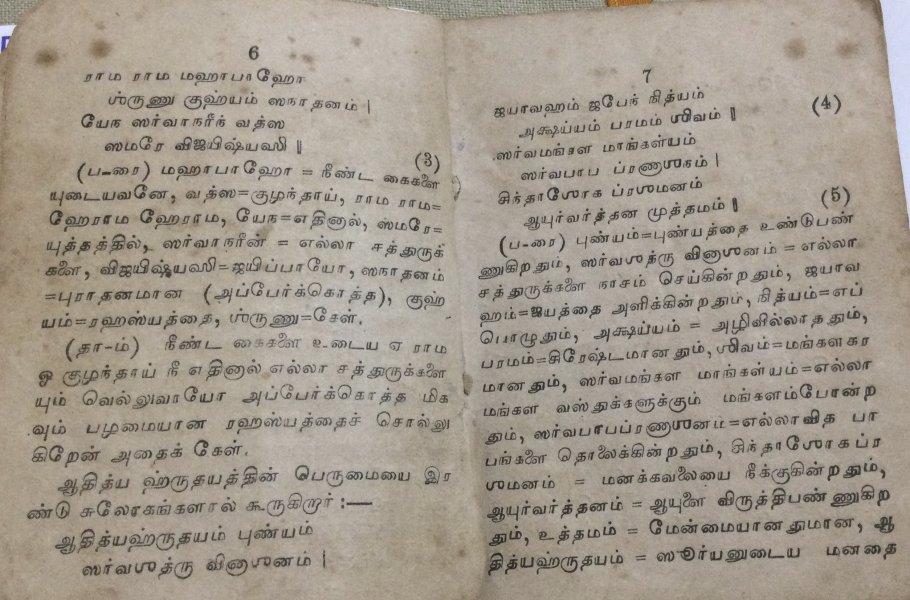 6
ராம ராம மஹாபாஹோ
ஶ்ருணு குஹ்யம் ஸநாதனம் |
யேந ஸர்வாநரீந் வத்ஸ
ஸமரே விஜயிஷ்யஸி ‖ (3)
(ப-ரை) மஹாபாஹோ = நீண்ட கைகளை
யுடையவனே, வத்ஸ=குழந்தாய், ராம ராம=
ஹேராம ஹேராம, யேந=எதினால், ஸமரே=
யுத்தத்தில், ஸர்வாநரீன் = எல்லா சத்துருக்
களை, விஜயிஷ்யஸி=ஜயிப்பாயோ, ஸநாதனம்
=புராதனமான (அப்பேர்க்கொத்த), குஹ
யம்=ரஹஸ்யத்தை, ஶ்ருணு=கேள்.
(தா-ம்) நீண்ட கைகளை உடைய ஏ ராம
ஓ குழந்தாய் நீ எதினால் எல்லா சத்துருக்களை
யும் வெல்லுவாயோ அப்பேர்க்கொத்த மிக
வும் பழமையான ரஹஸ்யத்தைச் சொல்லு
கிறேன் அதைக் கேள்.
ஆதித்ய ஹ்ருதயத்தின் பெருமையை இர
ண்டு சுலோகங்களால் கூருகிறார் :—
ஆதித்யஹ்ருதயம் புண்யம்
ஸர்வஶத்ரு வினாஶனம் |
7
ஜயாவஹம் ஜபேந் நித்யம்
அக்ஷய்யம் பரமம் ஶிவம் ‖ (4)
ஸர்வமங்கள மாங்கள்யம்
ஸர்வபாப ப்ரணாஶநம் |
சிந்தாஶோக ப்ரஶமனம்
ஆயுர்வர்த்தன முத்தமம் ‖ (5)
(ப-ரை) புண்யம்=புண்யத்தை உண்டுபண்
ணுகிறதும், ஸர்வஶத்ரு வினாஶனம் = எல்லா
சத்துருக்களை நாசம் செய்கின்றதும், ஜயாவ
ஹம்=ஜயத்தை அளிக்கின்றதும், நித்யம்=எப்
பொழுதும், அக்ஷய்யம் = அழிவில்லாததும்,
பரமம்=சிரேஷ்டமானதும், ஶிவம்=மங்களகர
மானதும், ஸர்வமங்கள மாங்கள்யம்=எல்லா
மங்கள வஸ்துக்களுக்கும் மங்களம்போன்ற
தும், ஸர்வபாபப்ரணாஶனம்=எல்லாவித பா
பங்களை தொலைக்கின்றதும், சிந்தாஶோகப்ர
ஶமனம் = மனக்கவலையை நீக்குகின்றதும்,
ஆயுர்வர்த்தனம் = ஆயுளை விருத்திபண்ணுகிற
தும், உத்தமம் = மேன்மையானதுமான, ஆ
தித்யஹ்ருதயம் = ஸூர்யனுடைய மனதை